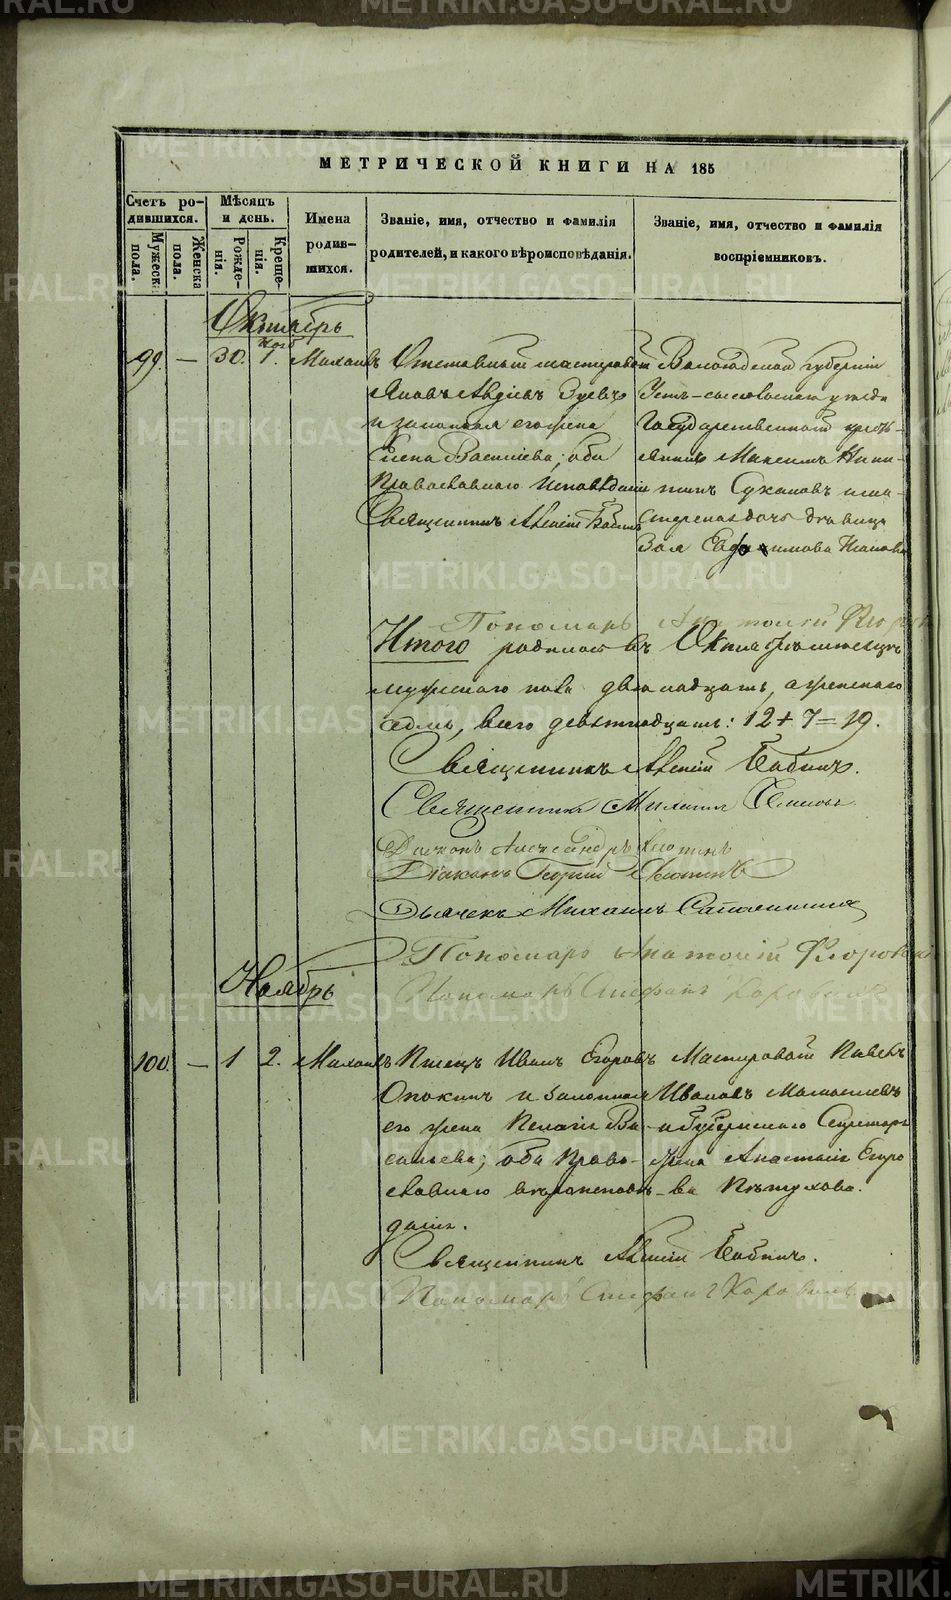 МЕТРИЧЕСКОЙ КНИГИ НА 185
Счетъ родившихся.
Мужеска пола.
Женска пола.
Мѣсяцъ и день.
Рожденія.
Крещенія.
Имена родившихся.
Званіе, имя, отчество и фамилія родителей, и какого вѣроисповѣданія.
Званіе, имя, отчество и фамилія воспріемниковъ.
Октябрь
99. — 30. Нояб 1. Михаилъ
Отставный мастеровой
Яковъ Авдіевъ Зуевъ
и законная его жена
Елена Васильева; оба
Православнаго Исповѣданія
Священникъ Бабинъ
Вологодской губерніи
Усть-сысольскаго уезда
Государственный кресть-
янинъ Максимъ Ники-
тинъ Сухановъ и
дочь дѣвица
Зоя
Пономарь Анатолій Флоровскій
Итого родилось въ Октябрѣ месяце
мужескаго пола двенадцать, а женскаго
седмь, всего девятнадцать: 12 + 7 = 19.
Священникъ Бабинъ.
Священникъ Михаилъ
Діаконъ Александръ
Діаконъ Георгій
Дьячекъ Михаилъ
Пономарь Анатолій Флоровскій
Пономарь Стефанъ
Ноябрь
100. — 1 2. Михаилъ
Писецъ Иванъ Егоровъ
и законная
его жена Пелагія Ва-
сильева; оба Право-
славнаго вѣроисповѣ-
данія.
Мастеровой Павелъ
Ивановъ
и Губернскаго Секретаря
жена Анастасія Егоро-
ва Пѣтухова.
Священникъ Бабинъ.
Пономарь Стефанъ
METRIKI.GASO-URAL.RU